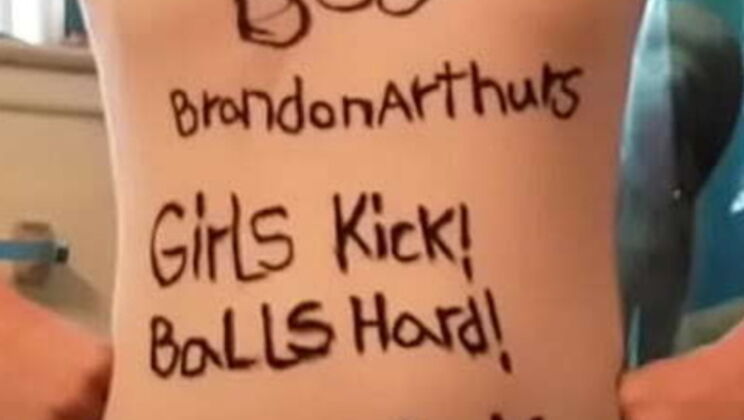 BrandonArthurs
GirLS Kick!
BaLLS Hard!